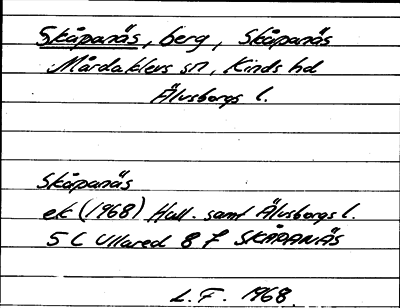 Skåpanäs, berg, Skåpanäs
Mårdaklevs sn, Kinds hd
Älvsborgs l.
Skåpanäs
ek (1968) Hall. samt Älvsborgs l.
5 C Ullared 8 f SKÅPANÄS
L. F. 1968